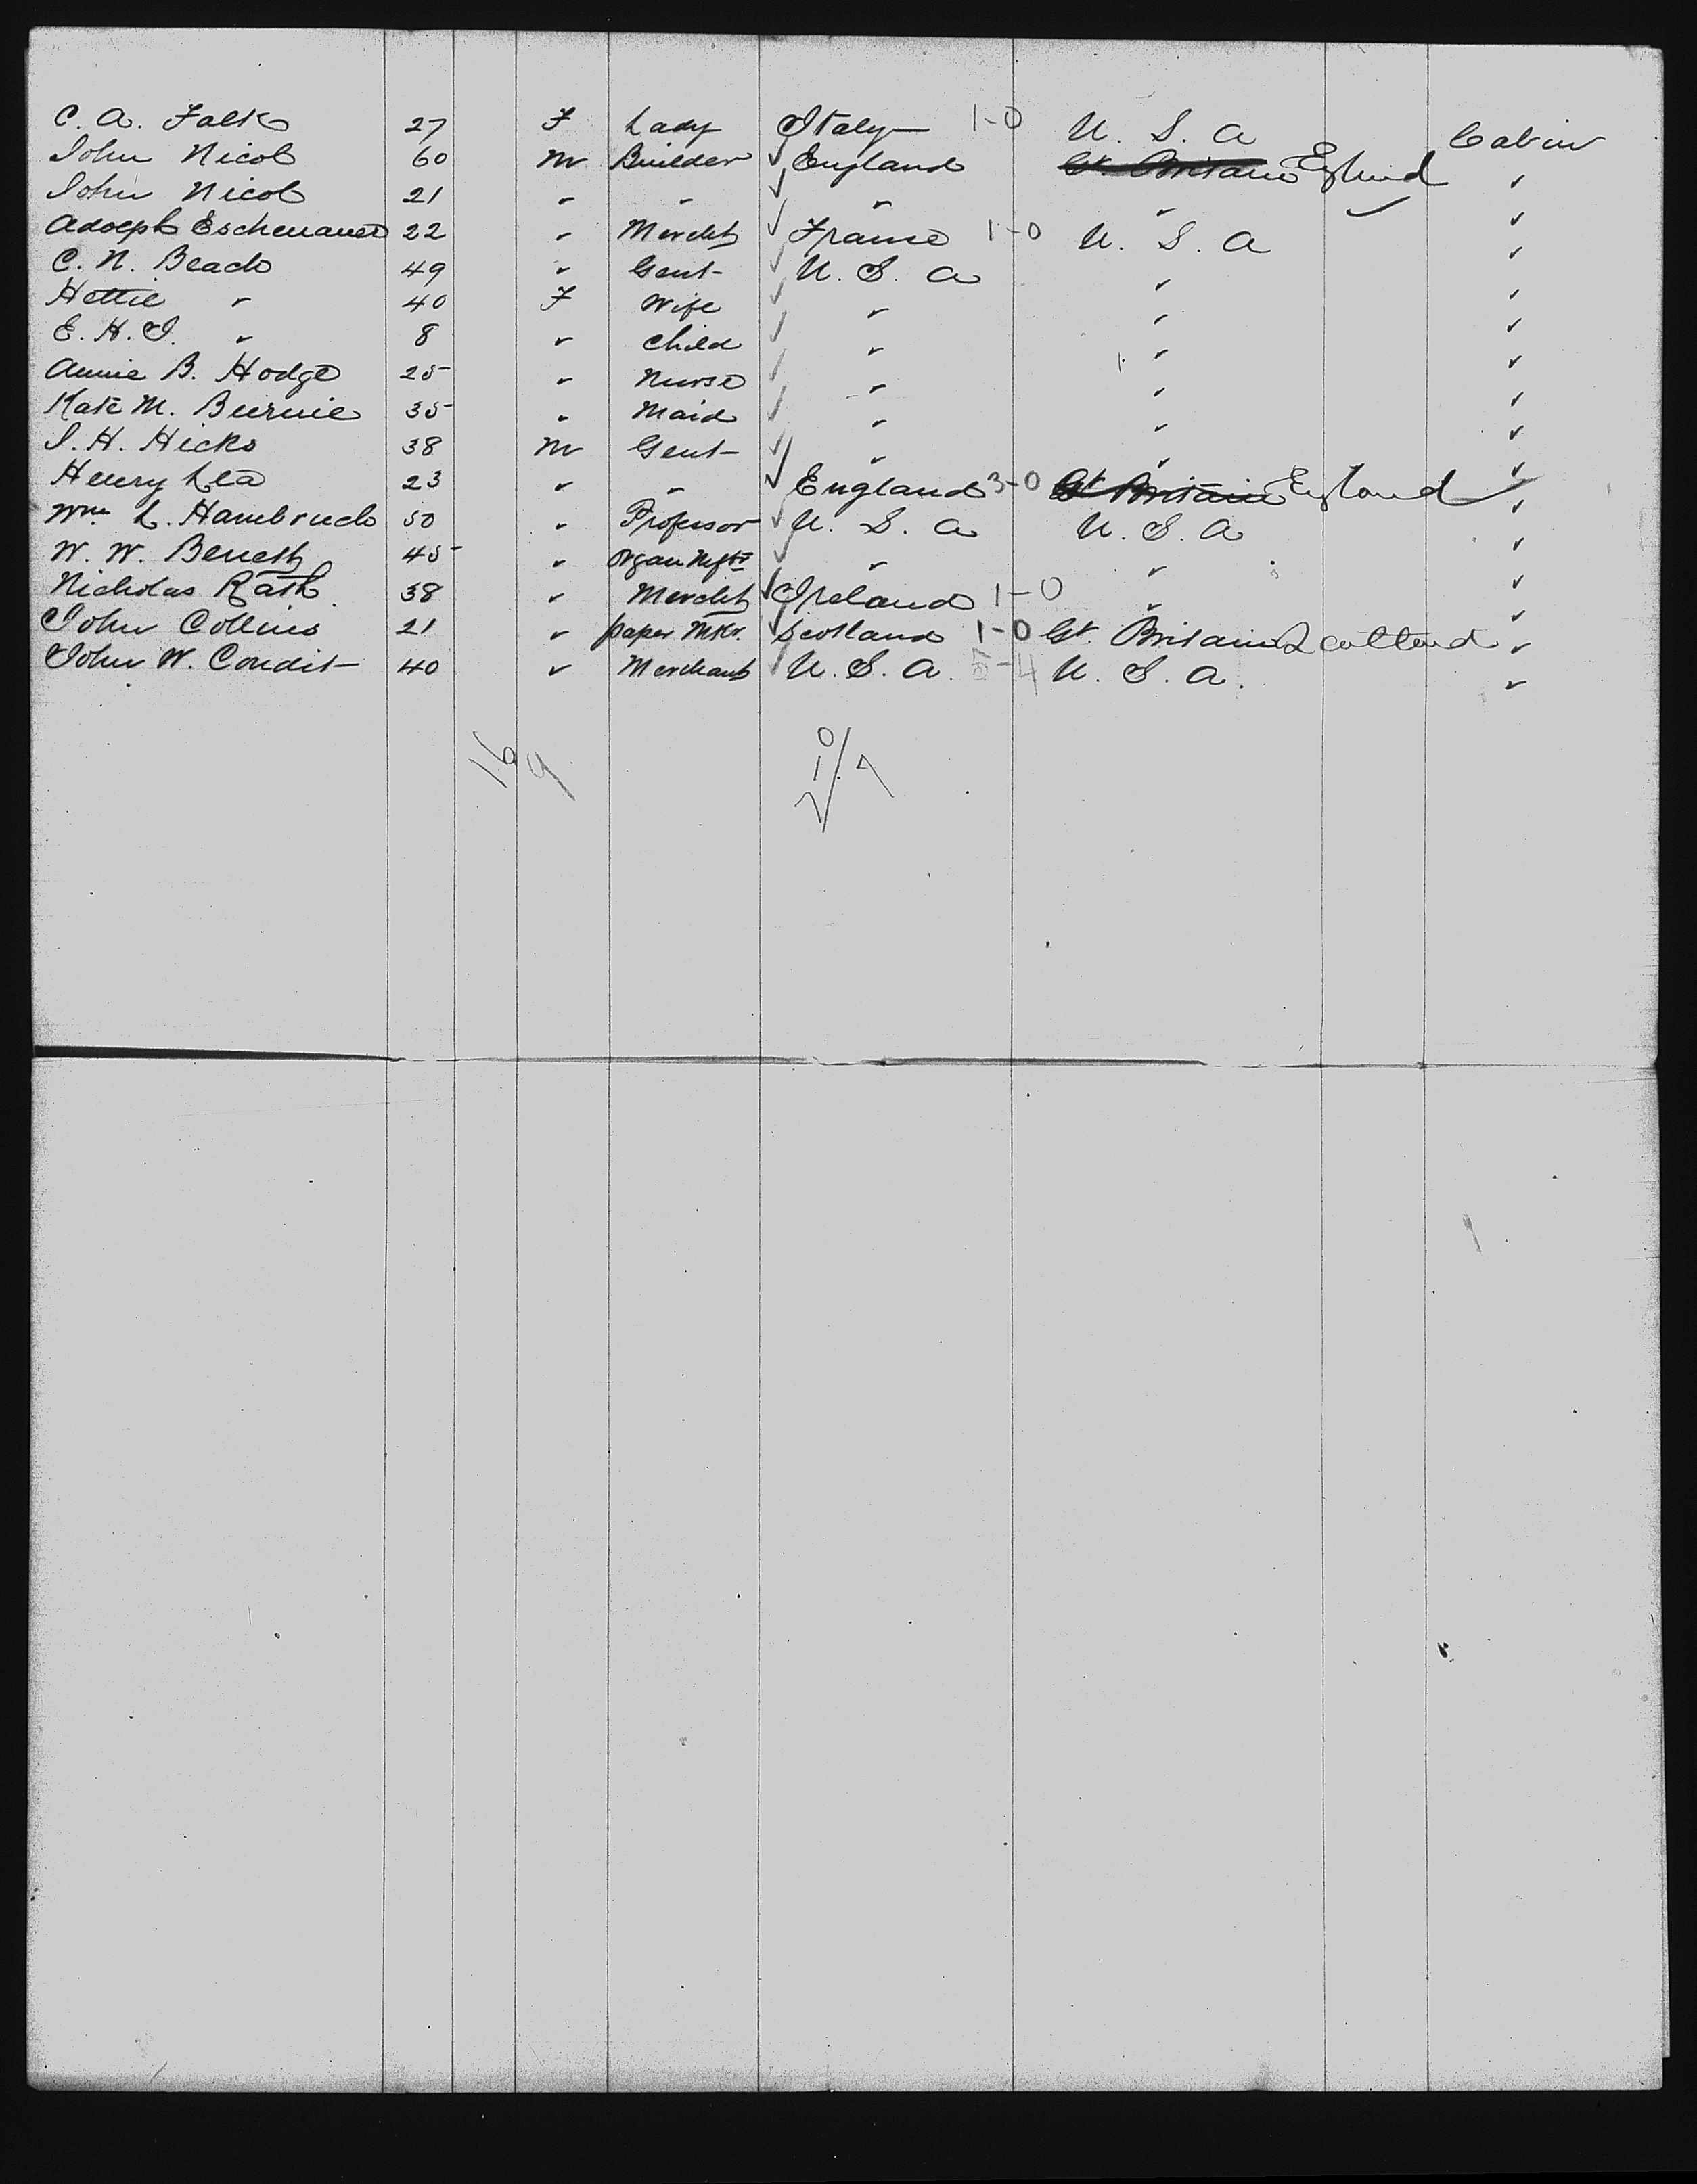 C. A. Falk 27 F Lady Italy 1-0 U. S. A Cabin
John Nicol 60 M Builder England Gt. Britain England "
John Nicol 21 " " " " "
Adolph Eschenauer 22 " Mercht France 1-0 U. S. A "
C. N. Beach 49 " Gent U. S. A " "
Hettie " 40 F Wife " " "
E. H. I. " 8 " Child " " "
Annie B. Hodge 25 " Nurse " " "
Kate M. Burnie 35 " Maid " " "
I. H. Hicks 38 M Gent " " "
Henry Lea 23 " " England 3-0 Gt Britain England "
Wm L. Hambruch 50 " Professor U. S. A U. S. A "
W. W. Benett 45 " Organ Mftr " " "
Nicholas Rath 38 " Mercht Ireland 1-0 " "
John Collins 21 " paper Mkr. Scotland 1-0 Gt. Britain Scottland "
John W. Condit 40 " Merchant U. S. A. 5-4 U. S. A. "
16 9
0
1/7
2